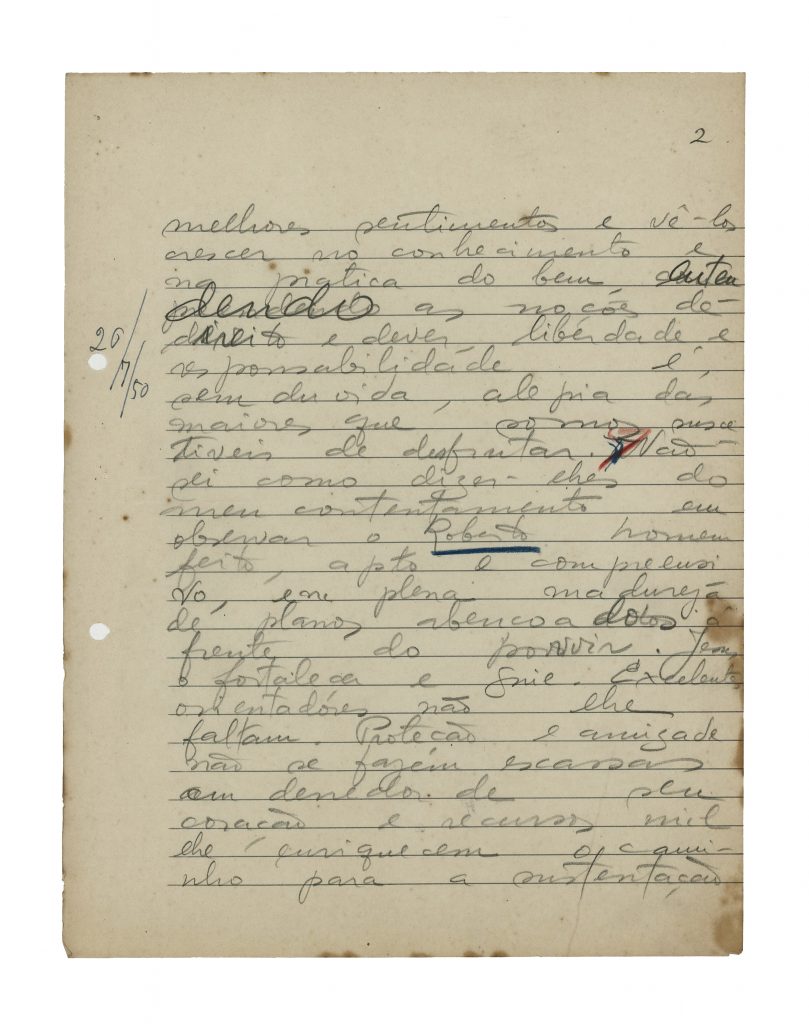 2
melhores sentimentos e vê-los
crescer no conhecimento e
na pratica do bem, enten
dendo as noções de
direito e dever, liberdade e
responsabilidade é,
sem duvida, alegria das
maiores que somos susce
tiveis de desfrutar. Não
sei como dizer-lhes do
meu contentamento em
observar o Roberto homem
feito, apto e compreensi
vo, em plena madureza
de planos abençoados á
frente do porvir. Jesus
o fortaleca e guie. Excelentes
orientadóres não lhe
faltam. Proteção e amizade
não se fazem escassas
em derredor de seu
coração e recursos mil
lhe enriquecem o cami-
nho para a sustentação
26/7/50